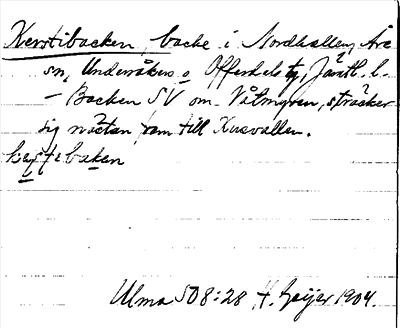 Kerstibacken, backe i Nordhallen, Åre
sn, Undersåkers o Offerdals tg, Jämtl. l.
— Backen SV om Våtmyren, sträcker
sig nästan fram till Husvallen.
Ulma 508:28 H. Geijer 1904.